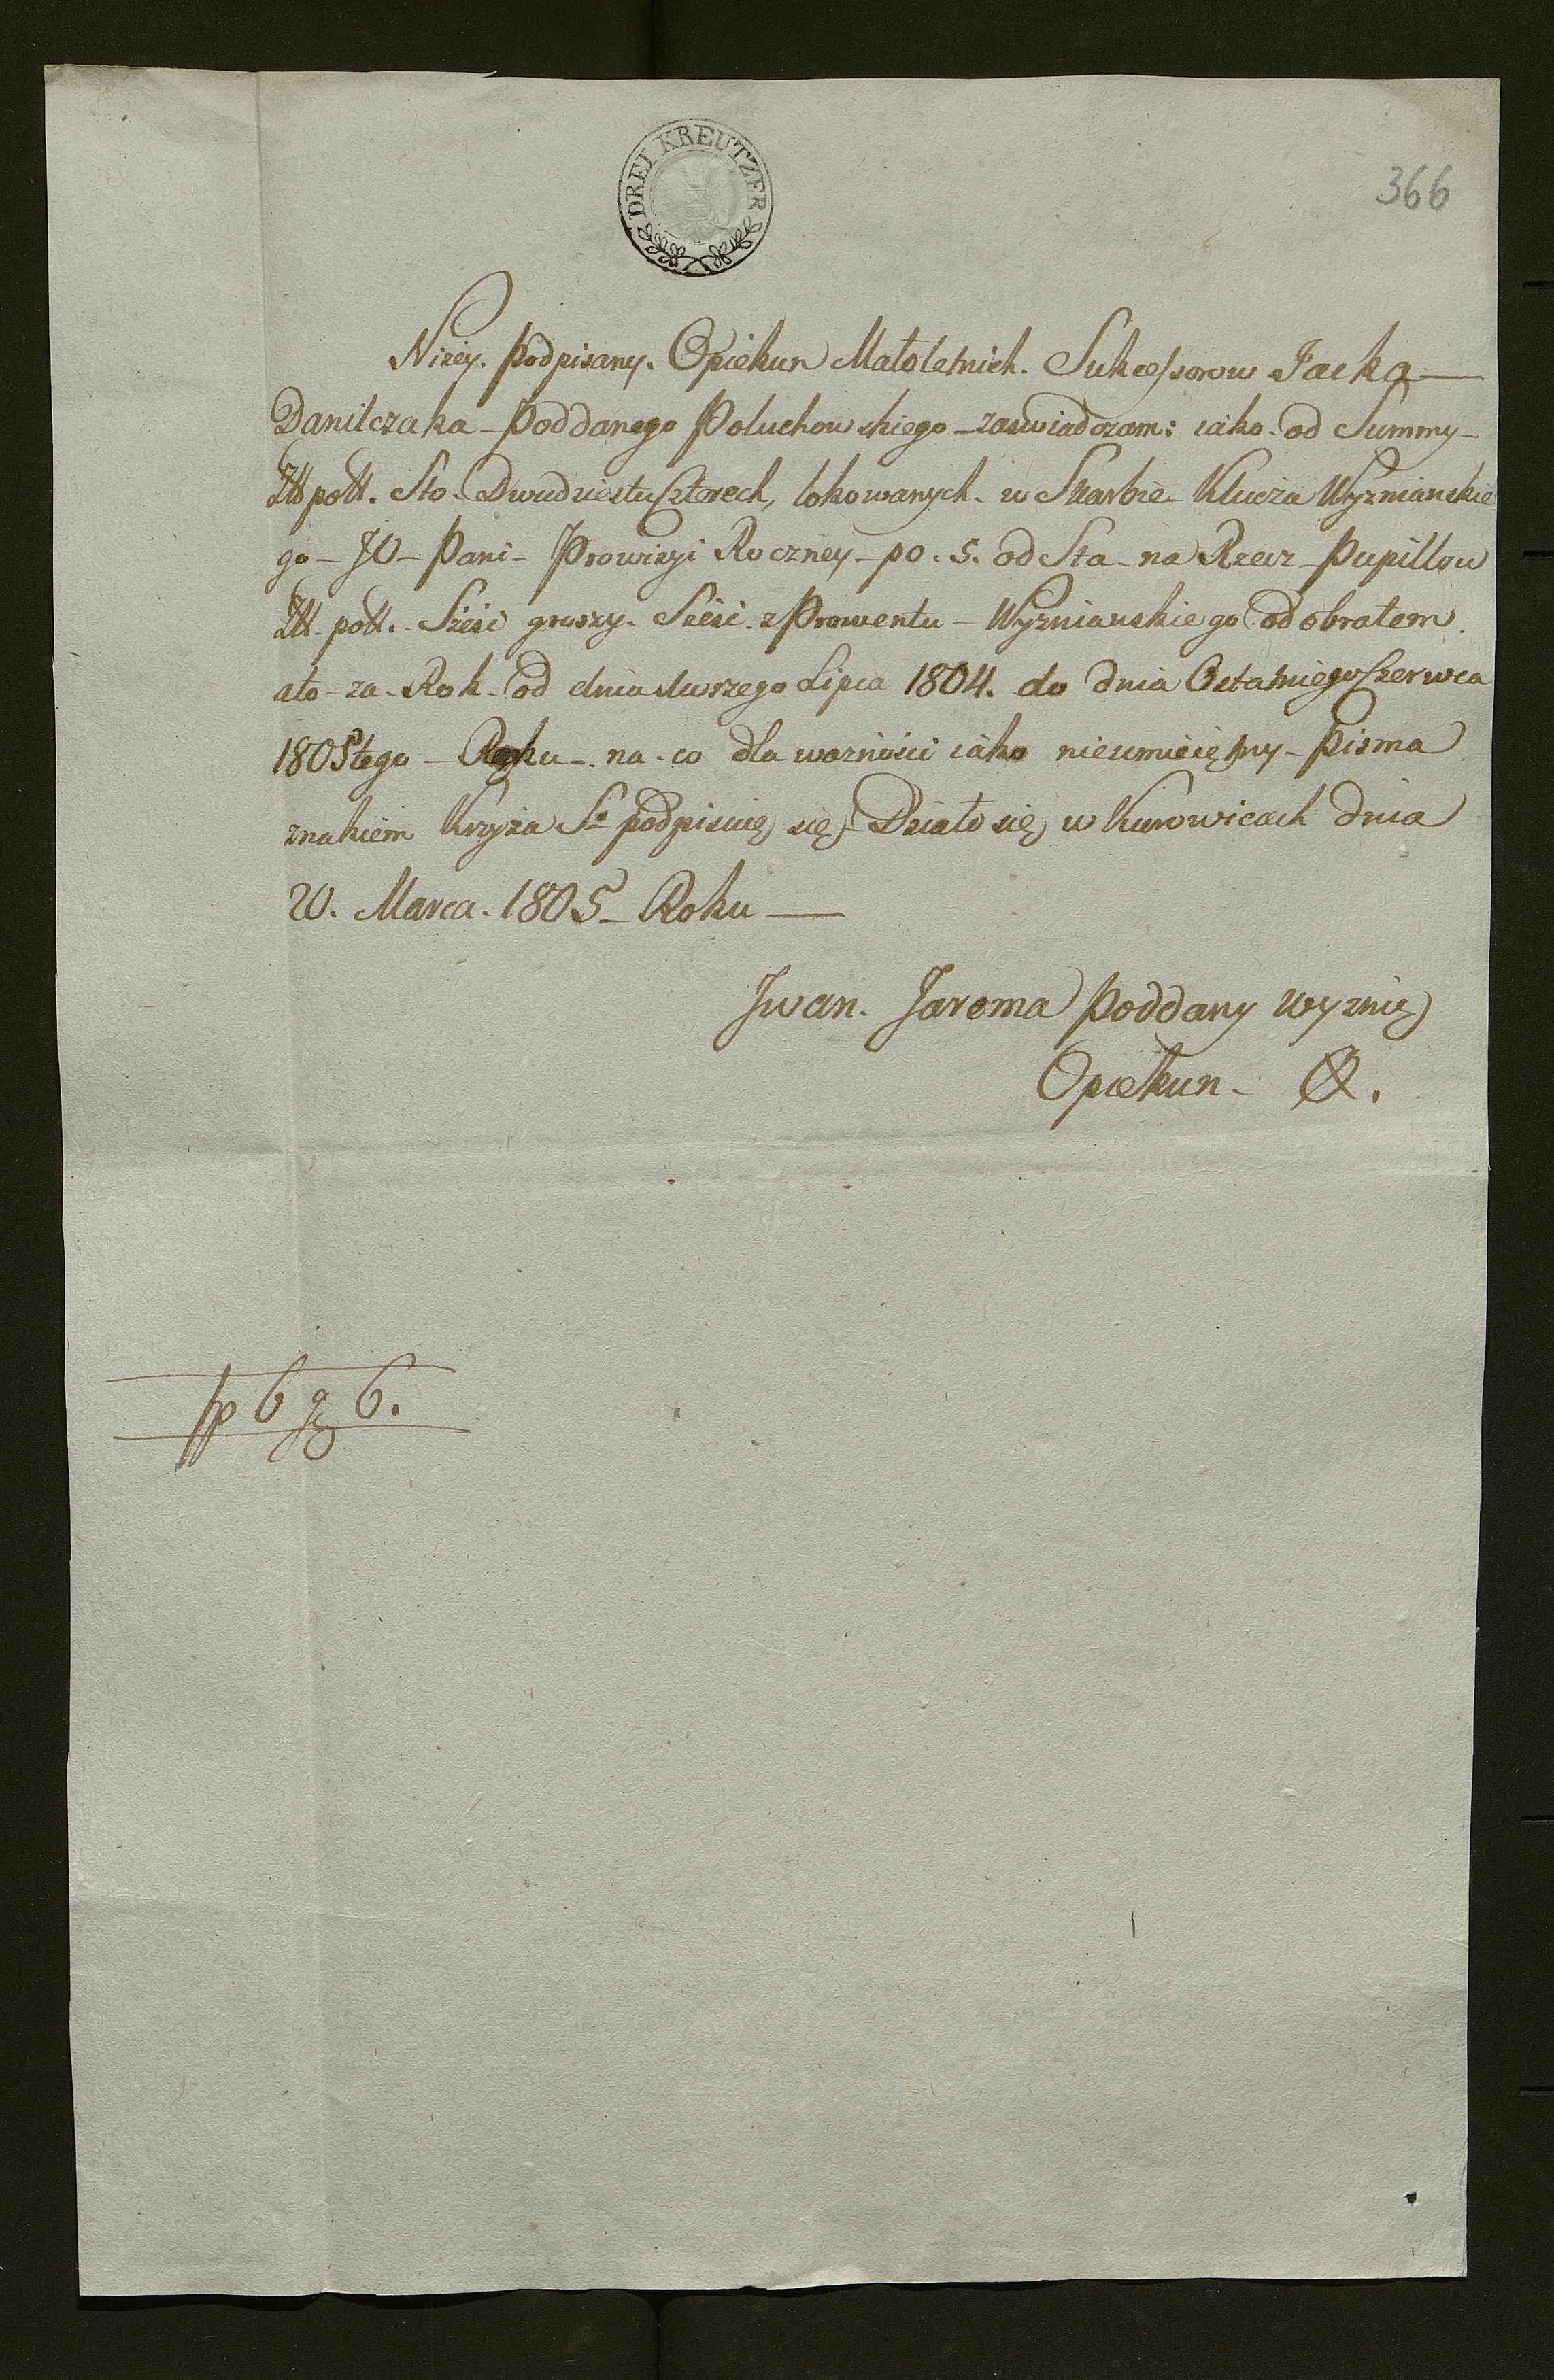 DREI KREUTZER
366
Niżey. Podpisany. Opiekun Małoletnich. Sukcessorow Jacka
Danilczaka – Poddanego Poluchowskiego – zaswiadczam: iako od Summy –
Złł poll. Sto. Dwudziestu Czterech, lokowanych. w Skarbie Klucza Wyznianskie
go – JO – Pani – Prowizyi Roczney – po. 5. od Sta – na Rzecz – Pupillow
Złł. poll. Sześć groszy. Sześć. z Prowentu – Wyznianskiego odebrałem.
ato – za – Rok. od dnia 1wszego Lipca 1804. do dnia Ostatniego Czerwca
1805tego – Roku – na – co dla wazności iako nieumieiętny – Pisma
znakiem Krzyża Sº podpisuię się – Działo się w Kurowicach dnia
20. Marca. 1805 – Roku —
Jwan. Jarema Poddany Wyznię
Opiekun –
fp 6 g 6.